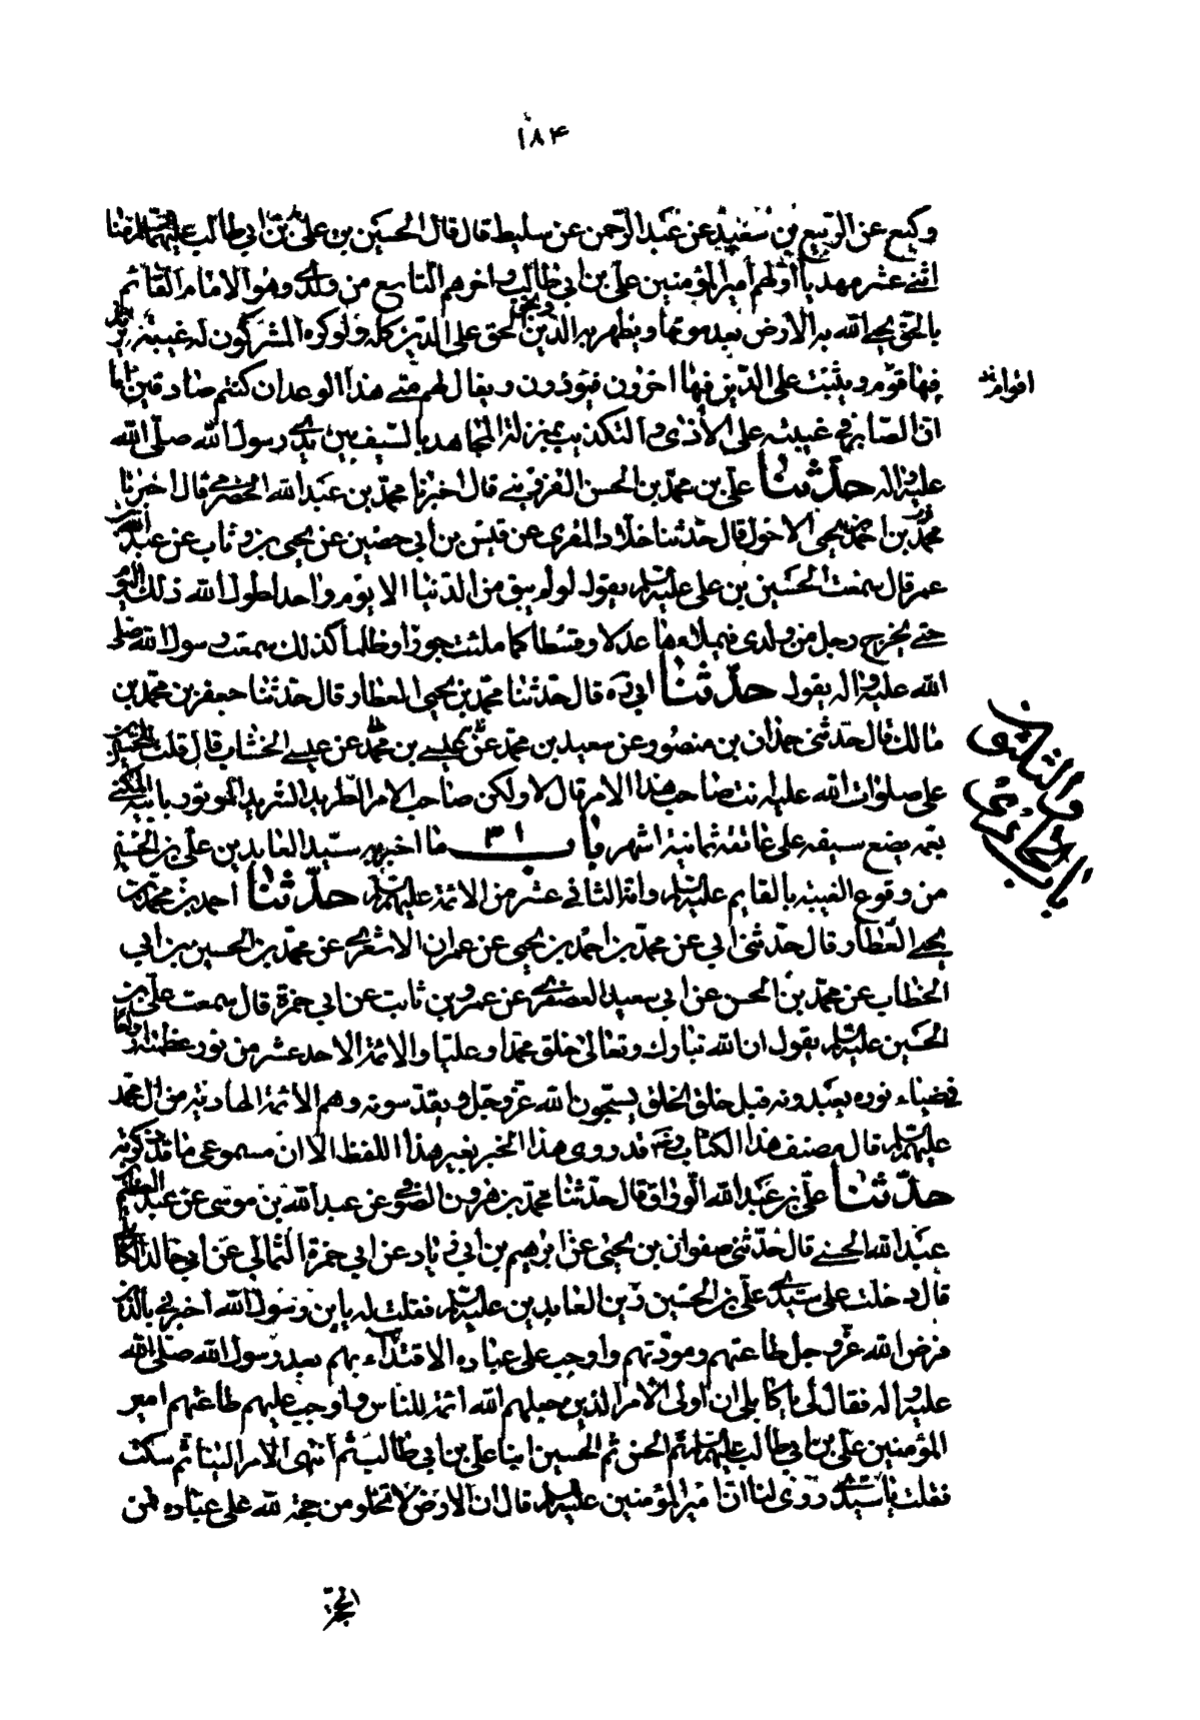 ۱۸۴
وكيع عن الربيع بن سعيد عن عبد الرحمن عن سليط قال قال الحسين بن علي بن ابي طالب عليهما السلم منا
اثنى عشر مهديا اولهم امير المؤمنين علي بن ابي طالب واخرهم التاسع من ولدى وهو الامام القائم
بالحق يحيى الله به الارض بعد موتها ويظهر به الدين ويحق الحق على الدين كله ولو كره المشركون له غيبة يرتد
فيها قوم ويثبت على الدين فيها اخرون فيؤذون ويقال لهم متى هذا الوعد ان كنتم صادقين اما
اقوام
ان الصابر في غيبته على الاذى والتكذيب بمنزلة المجاهد بالسيف بين يدى رسول الله صلى الله
عليه واله حدثنا علي بن محمد بن الحسن القزويني قال اخبرنا محمد بن عبد الله الحضرمي قال اخبرنا
محمد بن احمد بن يحيى الاحول قال حدثنا خلاد المقرى عن قيس بن ابي حصين عن يحيى بن وثاب عن عبد الله بن
عمر قال سمعت الحسين بن علي عليه السلم يقول لو لم يبق من الدنيا الا يوم واحد لطول الله ذلك اليوم
حتى يخرج رجل من ولدى فيملاءها عدلا وقسطا كما ملئت جورا وظلما كذلك سمعت رسول الله صلى
الله عليه واله يقول حدثنا ابي ره قال حدثنا محمد بن يحيى العطار قال حدثنا جعفر بن محمد بن
مالك قال حدثني حمدان بن منصور عن سعيد بن محمد عن عيسى بن محمد عن عيسى الخشاب قال قلت للحسين بن
علي صلوات الله عليه انت صاحب هذا الامر قال لا ولكن صاحب الامر الطريد الشريد الموتور بابيه المكنى
بعمه يضع سيفه على عاتقه ثمانية اشهر باب ۳۱ ما اخبر به سيد العابدين علي بن الحسين
باب الحادى والثلثون
من وقوع الغيبة بالقايم عليه السلم وانه الثاني عشر من الائمة عليهم السلم حدثنا احمد بن محمد بن
يحيى العطار قال حدثني ابي عن محمد بن احمد بن يحيى عن عمران الاشعرى عن محمد بن الحسين بن ابي
الخطاب عن محمد بن الحسن عن ابي سعيد العصفرى عن عمرو بن ثابت عن ابي حمزة قال سمعت علي بن
الحسين عليه السلم يقول ان الله تبارك وتعالى خلق محمدا وعليا والائمة الاحد عشر من نور عظمته ارواحا
في ضياء نوره يعبدونه قبل خلق الخلق يسبحون الله عز وجل ويقدسونه وهم الائمة الهادية من ال محمد
عليهم السلم قال مصنف هذا الكتاب ره قد روى هذا الخبر بغير هذا اللفظ الا ان مسموعى ما قد ذكرته
حدثنا علي بن عبد الله الوراق قال حدثنا محمد بن هرون الصوفى عن عبد الله بن موسى عن عبد العظيم بن
عبد الله الحسني قال حدثني صفوان بن يحيى عن ابرهيم بن ابي زياد عن ابي حمزة الثمالي عن ابي خالد الكابلى
قال دخلت على سيدى علي بن الحسين زين العابدين عليه السلم فقلت له يا بن رسول الله اخبرني بالذين
فرض الله عز وجل طاعتهم ومودتهم واوجب على عباده الاقتداء بهم بعد رسول الله صلى الله
عليه واله فقال لي يا كابلى ان اولى الامر الذين جعلهم الله ائمة للناس واوجب عليهم طاعتهم امير
المؤمنين علي بن ابي طالب عليه السلم ثم الحسن ثم الحسين ابنا علي بن ابي طالب ثم انتهى الامر الينا ثم سكت
فقلت يا سيدى روى لنا ان امير المؤمنين عليه السلم قال ان الارض لا تخلو من حجة لله على عباده فمن
الحجة